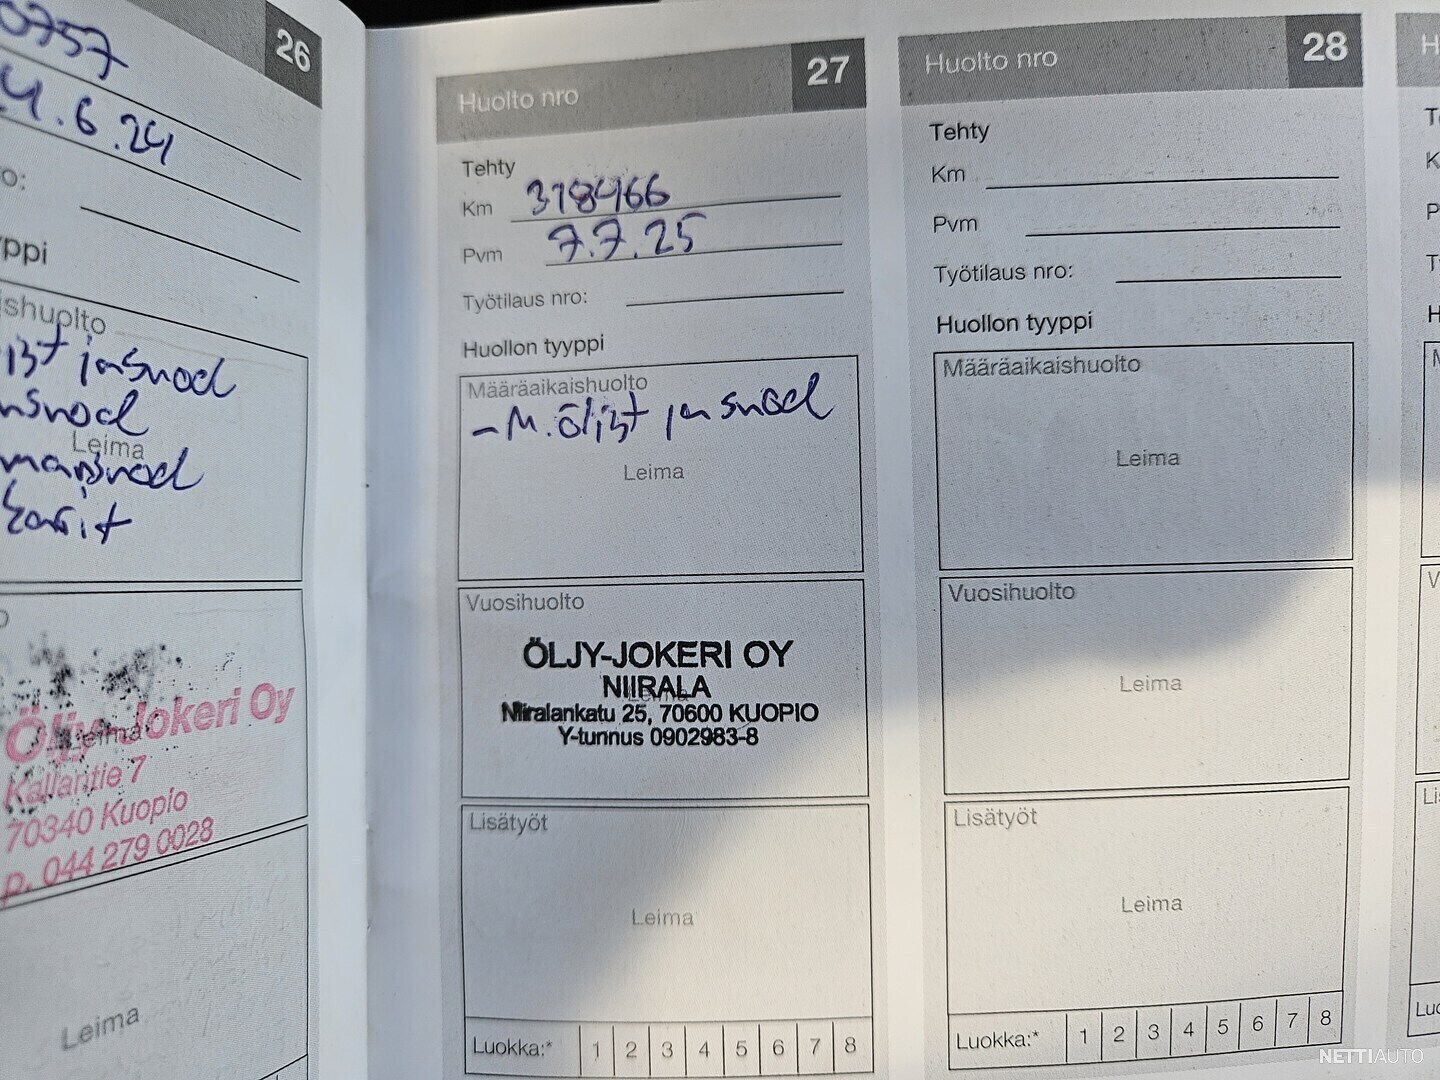 26
0757
4.6.24
ro:
yppi
ishuolto
öljyt ja snod
nsnod
Leima
snod
Öljy-Jokeri Oy
Leima
Kallantie 7
70340 Kuopio
p. 044 279 0028
Leima
Huolto nro 27
Tehty
Km 318466
Pvm 7.7.25
Työtilaus nro:
Huollon tyyppi
Määräaikaishuolto
- M. öljyt ja snod
Leima
Vuosihuolto
ÖLJY-JOKERI OY
NIIRALA
Leima
Niiralankatu 25, 70600 KUOPIO
Y-tunnus 0902983-8
Lisätyöt
Leima
Luokka:* 1 2 3 4 5 6 7 8
Huolto nro 28
Tehty
Km
Pvm
Työtilaus nro:
Huollon tyyppi
Määräaikaishuolto
Leima
Vuosihuolto
Leima
Lisätyöt
Leima
Luokka:* 1 2 3 4 5 6 7 8
NETTIAUTO